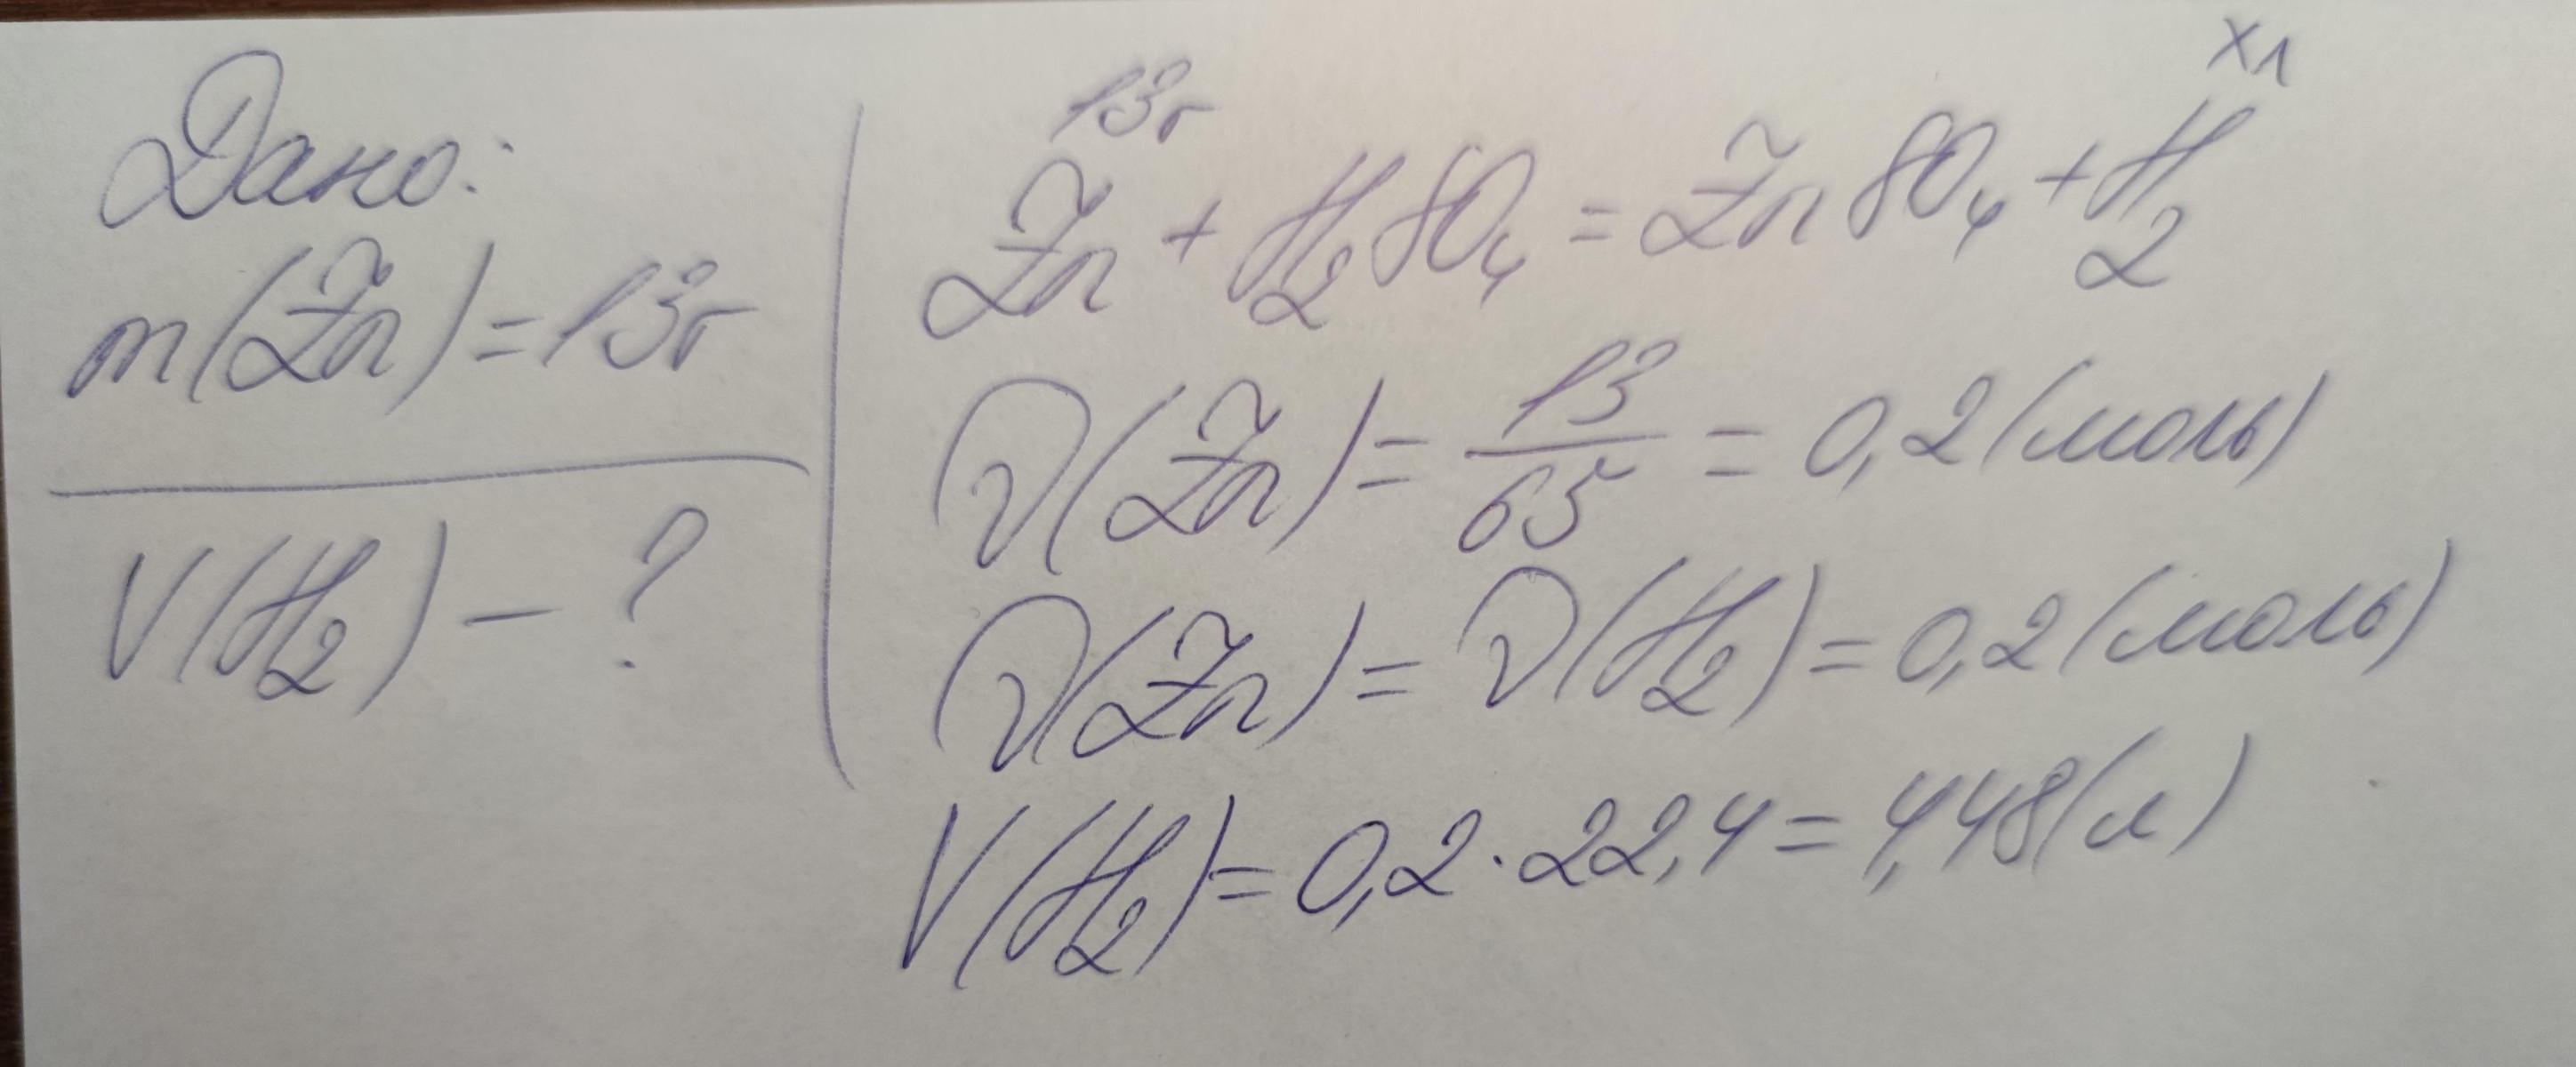 Дано:
m(Zn)=13г
V(H₂) – ?
13г xл
Zn + H₂SO₄ = ZnSO₄ + H₂
ν(Zn) = 13/65 = 0,2 (моль)
ν(Zn) = ν(H₂) = 0,2 (моль)
V(H₂) = 0,2 · 22,4 = 4,48 (л)